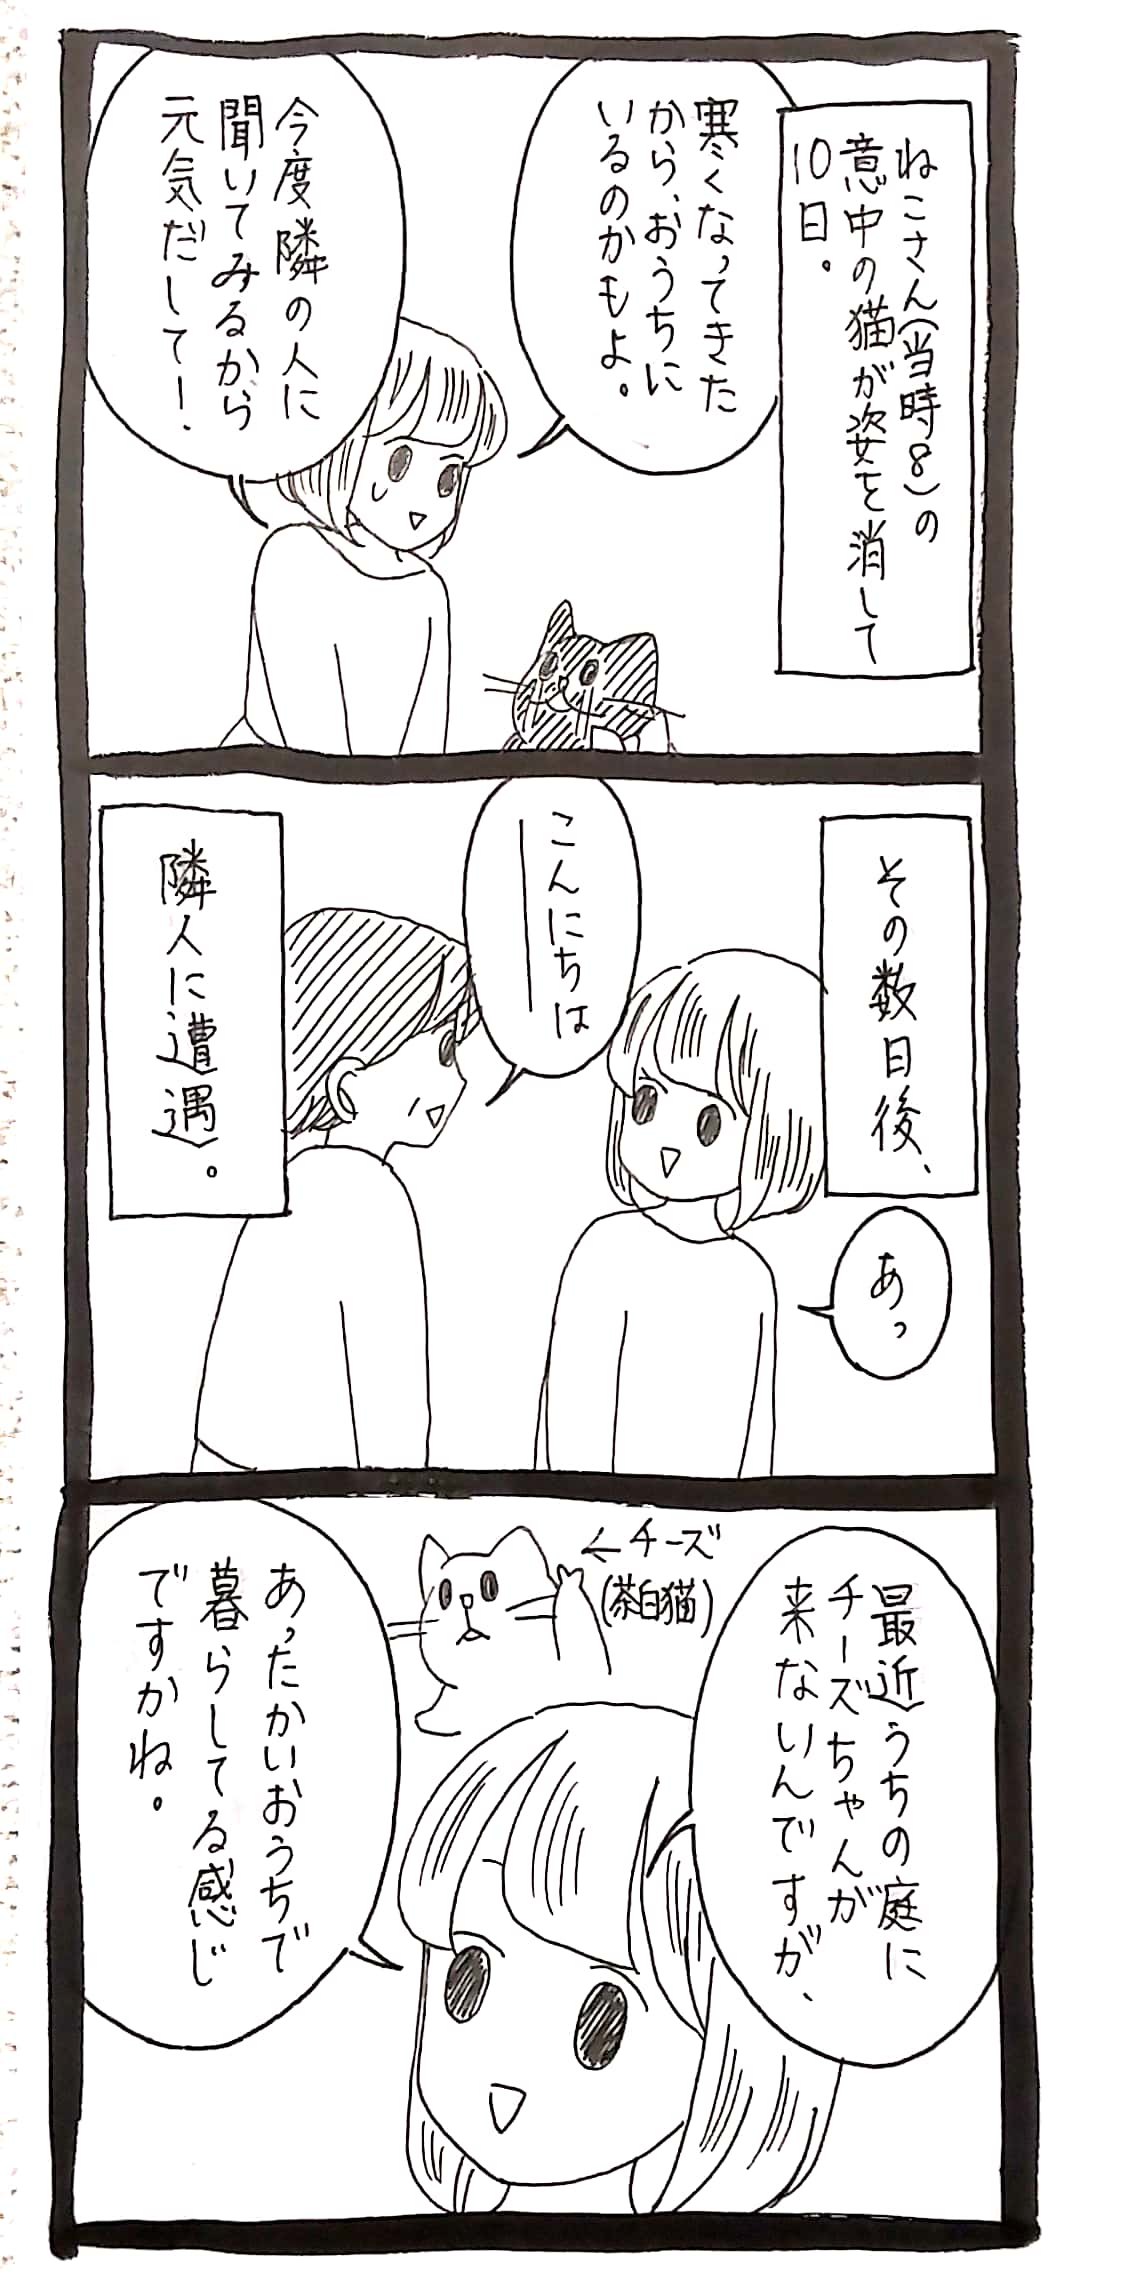 ねこさん(当時8)の
意中の猫が姿を消して
10日。
寒くなってきた
から、おうちに
いるのかもよ。
今度隣の人に
聞いてみるから
元気だして!
その数日後、
あっ
こんにちは
隣人に遭遇。
最近うちの庭に
チーズちゃんが
来ないんですが、
←チーズ
(茶白猫)
あったかいおうちで
暮らしてる感じ
ですかね。